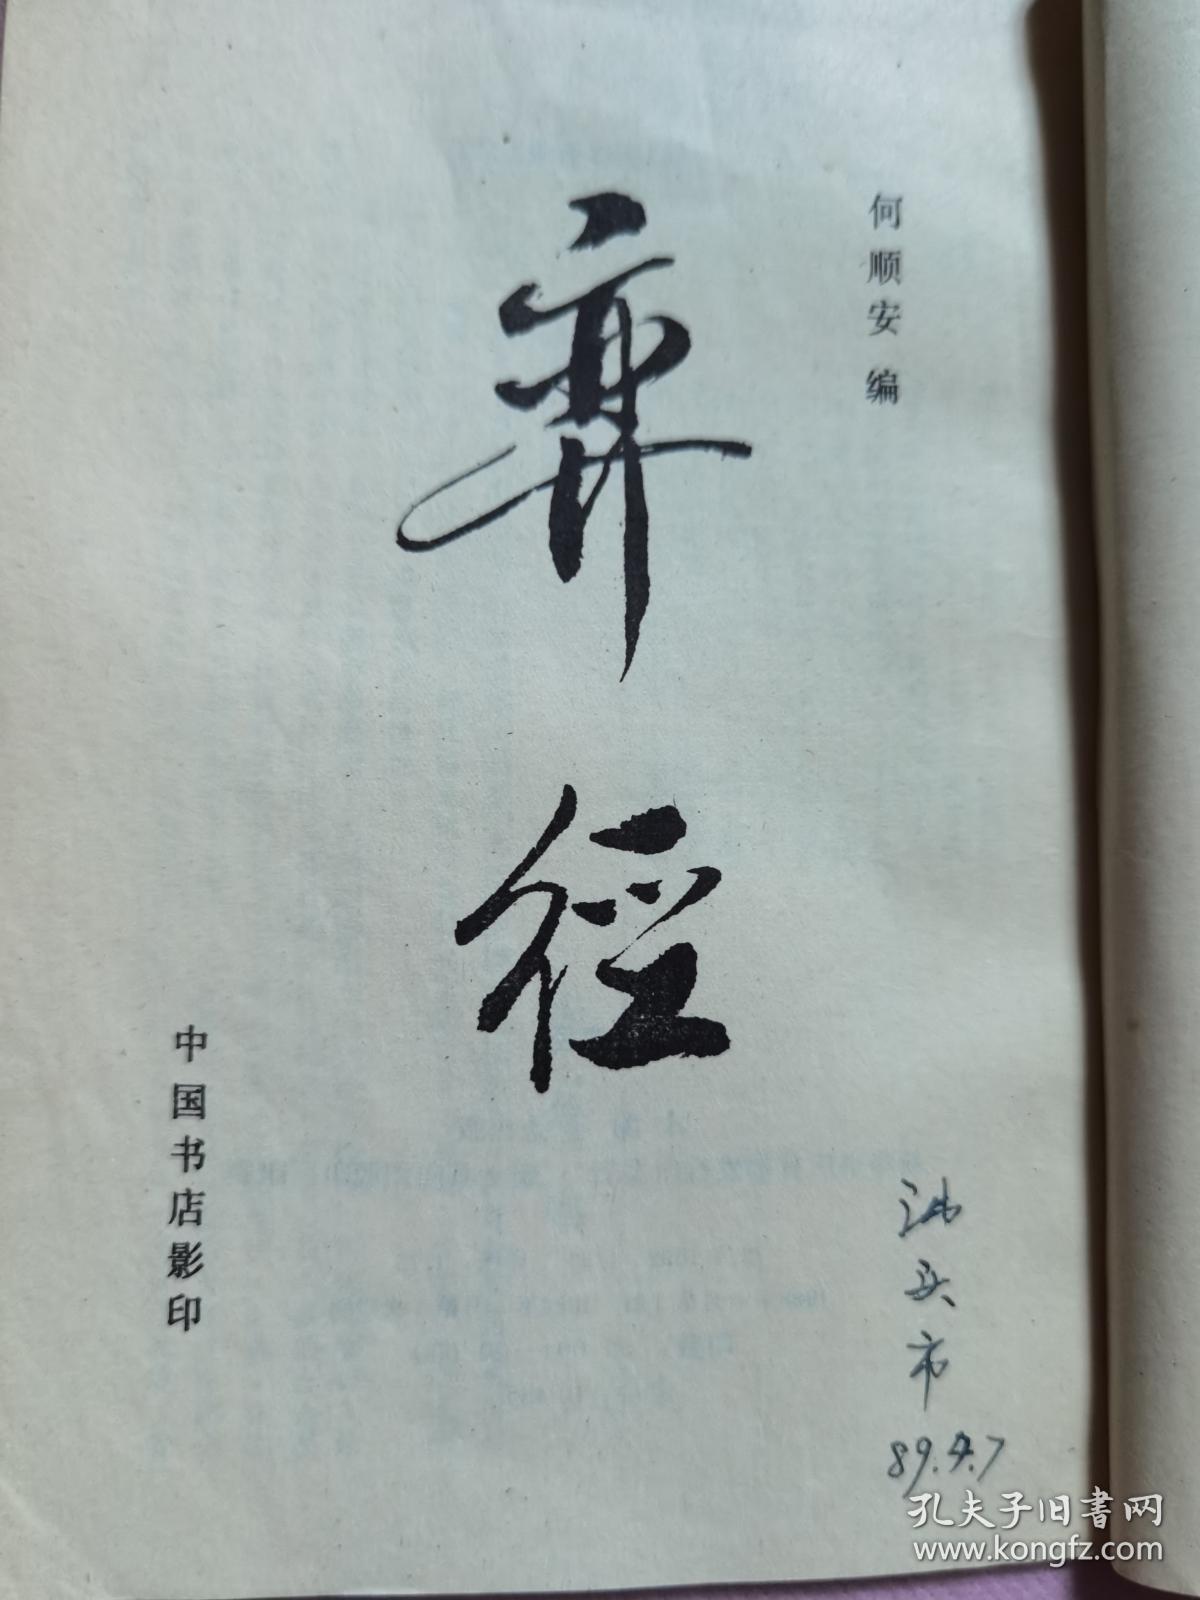 何顺安 编
弈径
中国书店影印
汕头市
89.4.7
孔夫子旧书网
www.kongfz.com